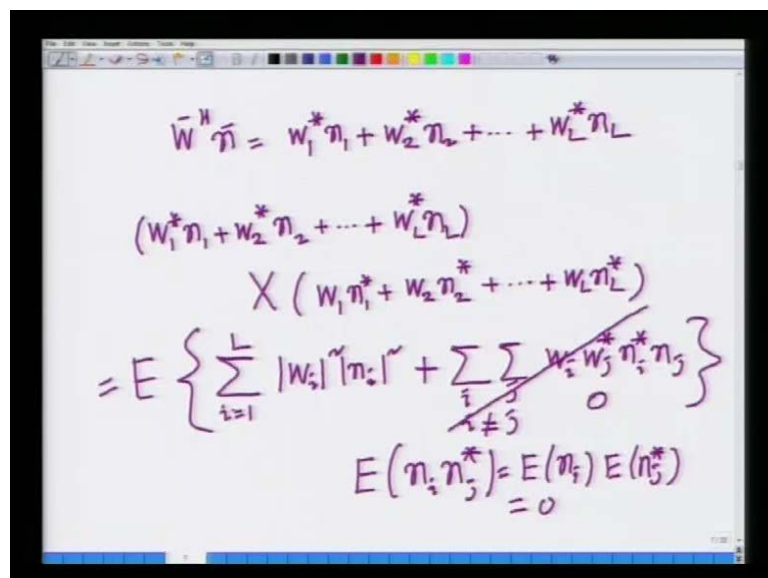 File Edit View Insert Actions Tools Help
w̄ᴴ n̄ = w₁* n₁ + w₂* n₂ + ··· + w_L* n_L
(w₁* n₁ + w₂* n₂ + ··· + w_L* n_L)
X (w₁ n₁* + w₂ n₂* + ··· + w_L n_L*)
= E { Σ_{i=1}^{L} |w_i|² |n_i|² + Σ_i Σ_j_{i≠j} w_i w_j* n_i* n_j 0 }
E(n_i n_j*) = E(n_i) E(n_j*)
= 0